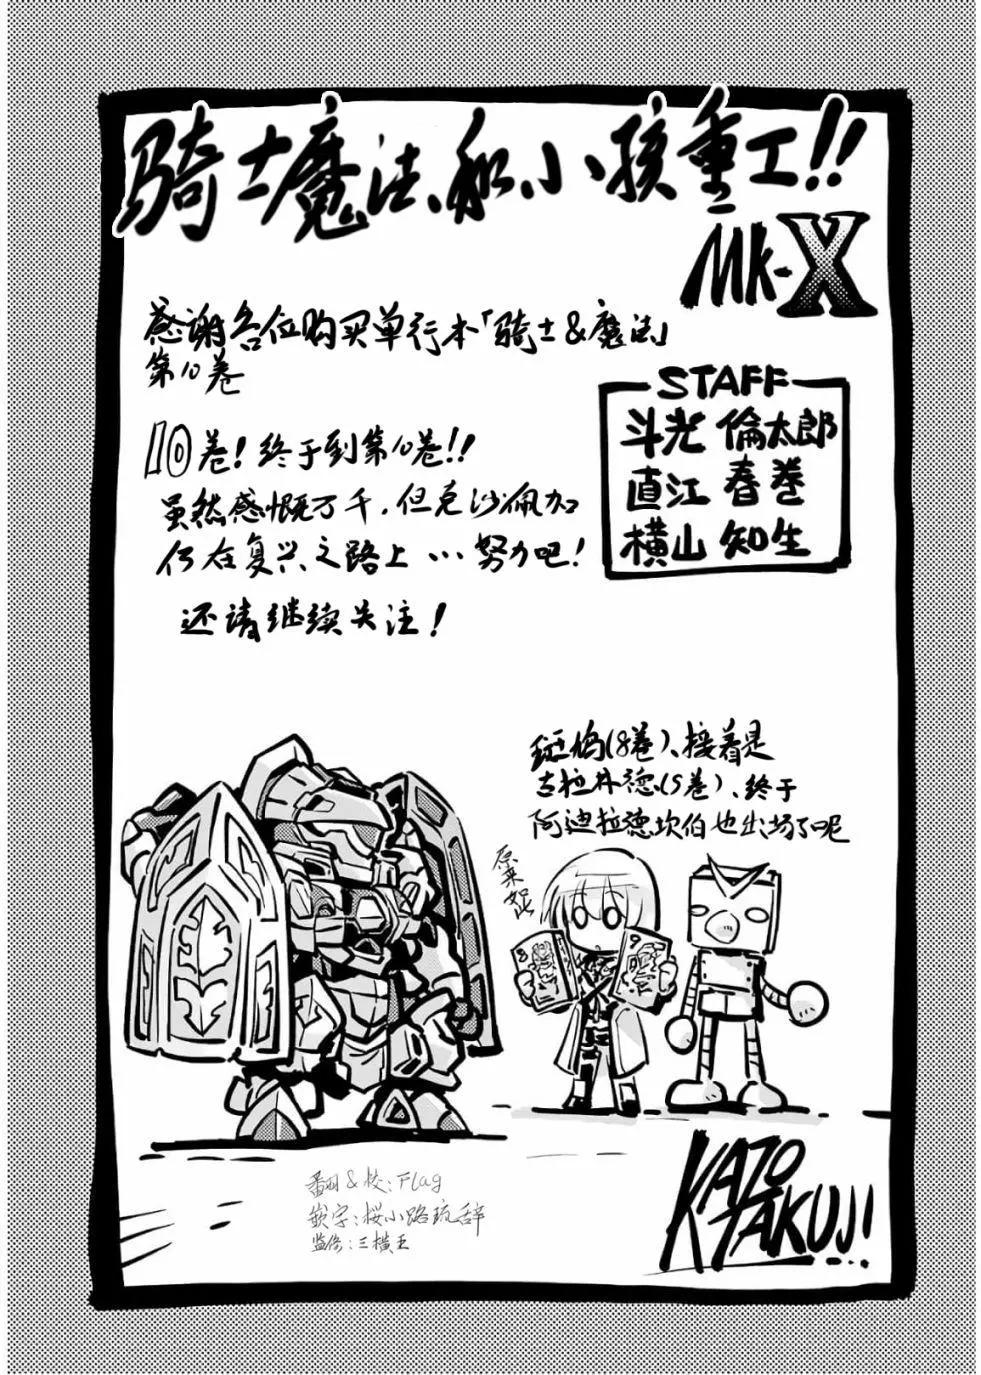 骑士魔法和小孩重工!!
MK-X
感谢各位购买单行本「骑士&魔法」
第10卷
STAFF
斗光 倫太郎
直江 春巻
横山 知生
10卷！终于到第10卷!!
虽然感慨万千，但克沙佩加
仍在复兴之路上…努力吧！
还请继续关注！
斑鸠(8卷)、接着是
古拉林德(5卷)、终于
阿迪拉德坎伯也出场了呢
原来如此
8
9
翻&校：Flag
嵌字：桜小路琉辞
监修：三横王
KATO TAKUJI